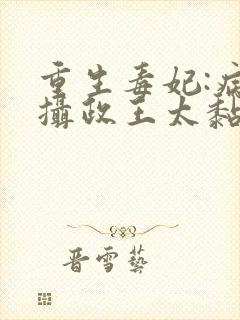 重生毒妃:病
攝政王太黏
晋雪藝